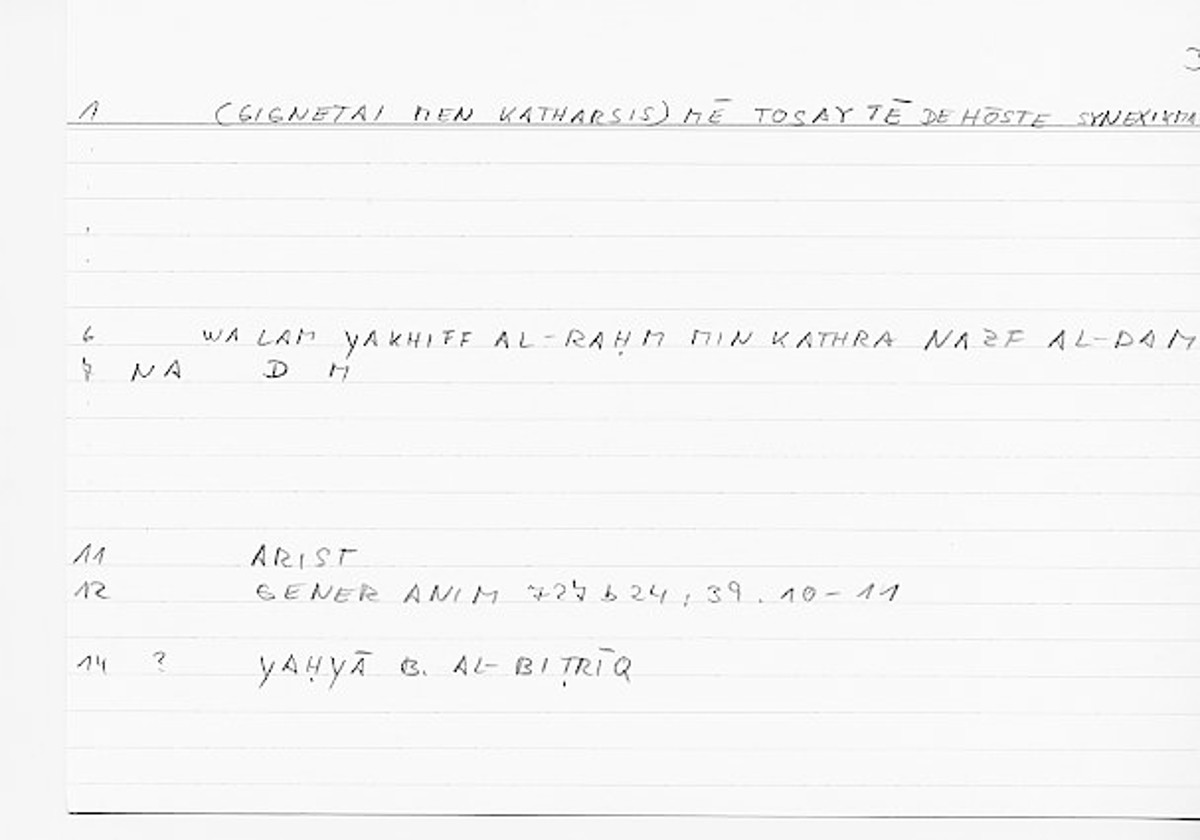 3
1 (GIGNETAI MEN KATHARSIS) MĒ TOSAYTĒ DE HŌSTE
6 WA LAM YAKHIFF AL-RAḤM MIN KATHRA NAZF AL-DAM
7 NA D M
11 ARIST
12 GENER ANIM 727 b 24; 39.10-11
14 ? YAḤYĀ B. AL-BIṬRĪQ